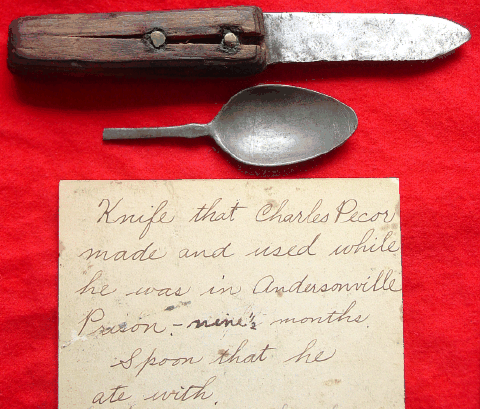 Knife that Charles Pecor
made and used while
he was in Andersonville
Prison. - nine months.
Spoon that he
ate with.